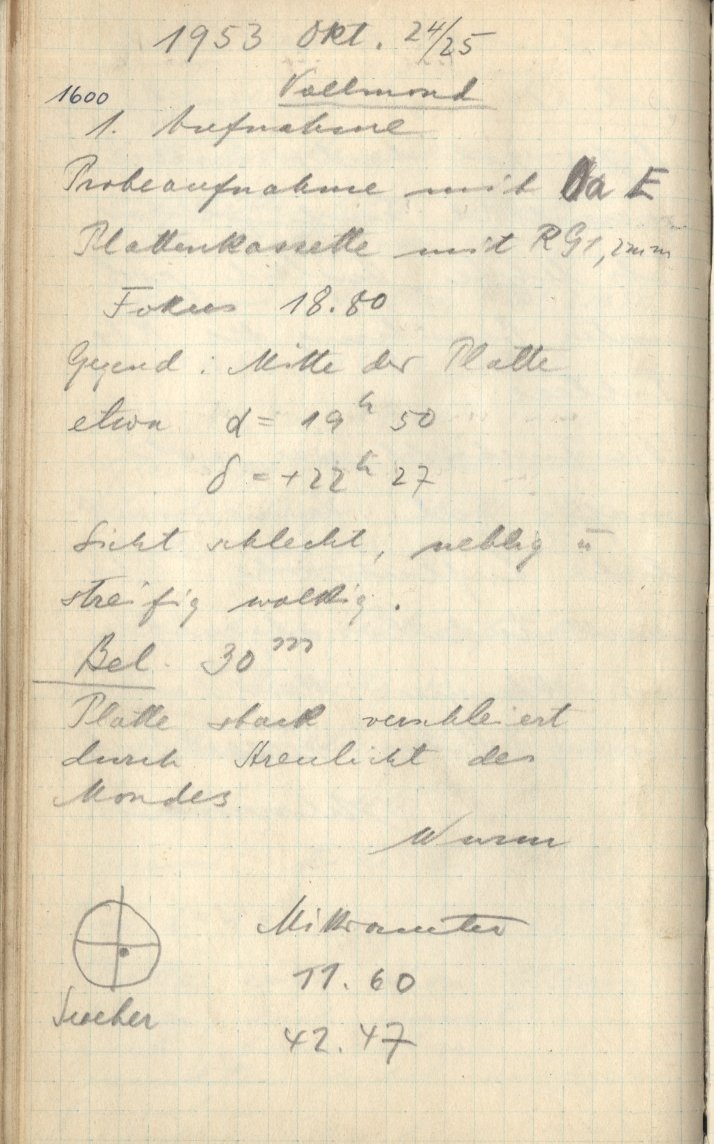 1953 Okt. 24/25
1600 Vollmond
1. Aufnahme
Probeaufnahme mit 0a E
Plattenkassette mit RG1, 2mm
Fokus 18.80
Gegend: Mitte der Platte
etwa α = 19ʰ 50
δ = +22ʰ 27
Sicht schlecht, neblig u
streifig wolkig.
Bel. 30ᵐ
Platte stark verschleiert
durch Streulicht des
Mondes
Wurm
Mikrometer
11.60
Sucher
42.47